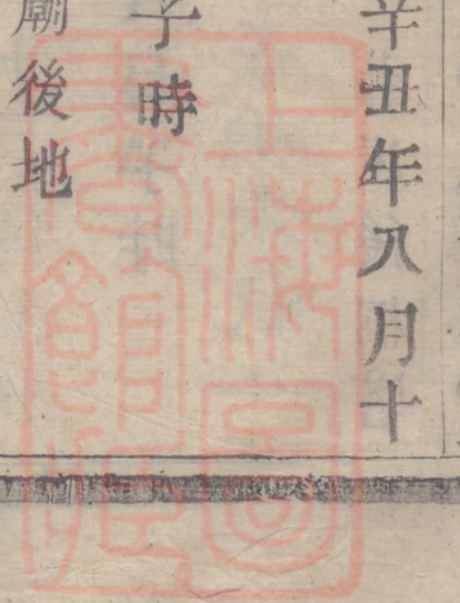 辛丑年八月十
子時
廟後地
上海圖
書館藏